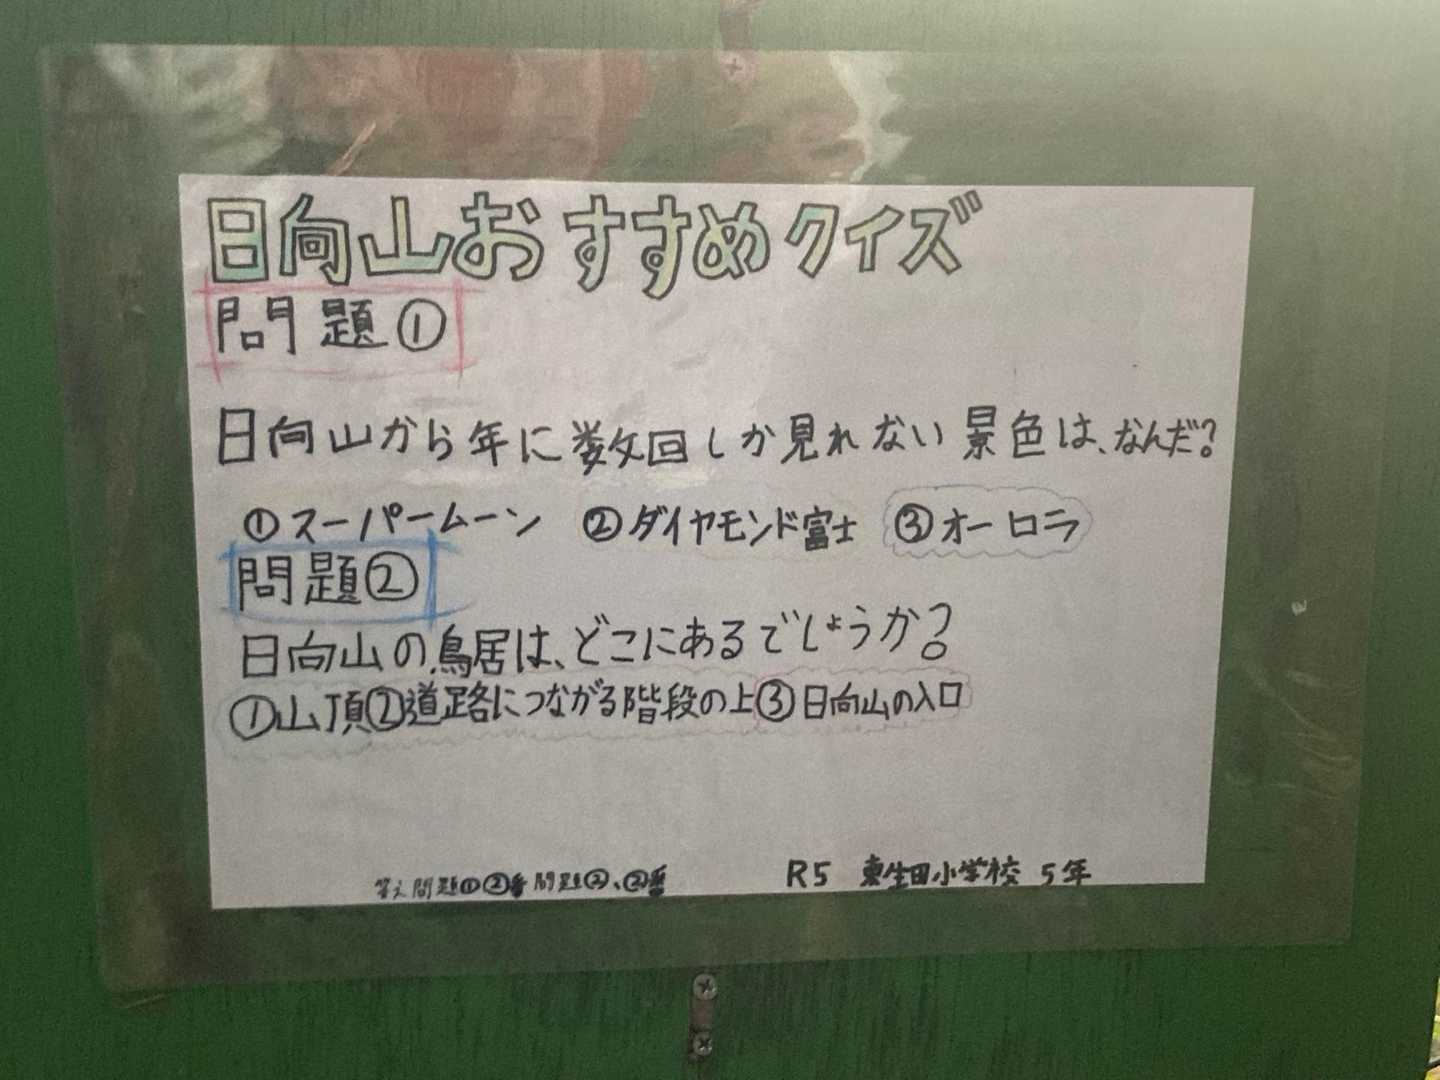 日向山おすすめクイズ
問題①
日向山から年に数回しか見れない景色は、なんだ?
①スーパームーン ②ダイヤモンド富士 ③オーロラ
問題②
日向山の鳥居は、どこにあるでしょうか?
①山頂②道路につながる階段の上③日向山の入口
答え問題①②番問題②、②番
R5 東生田小学校 5年